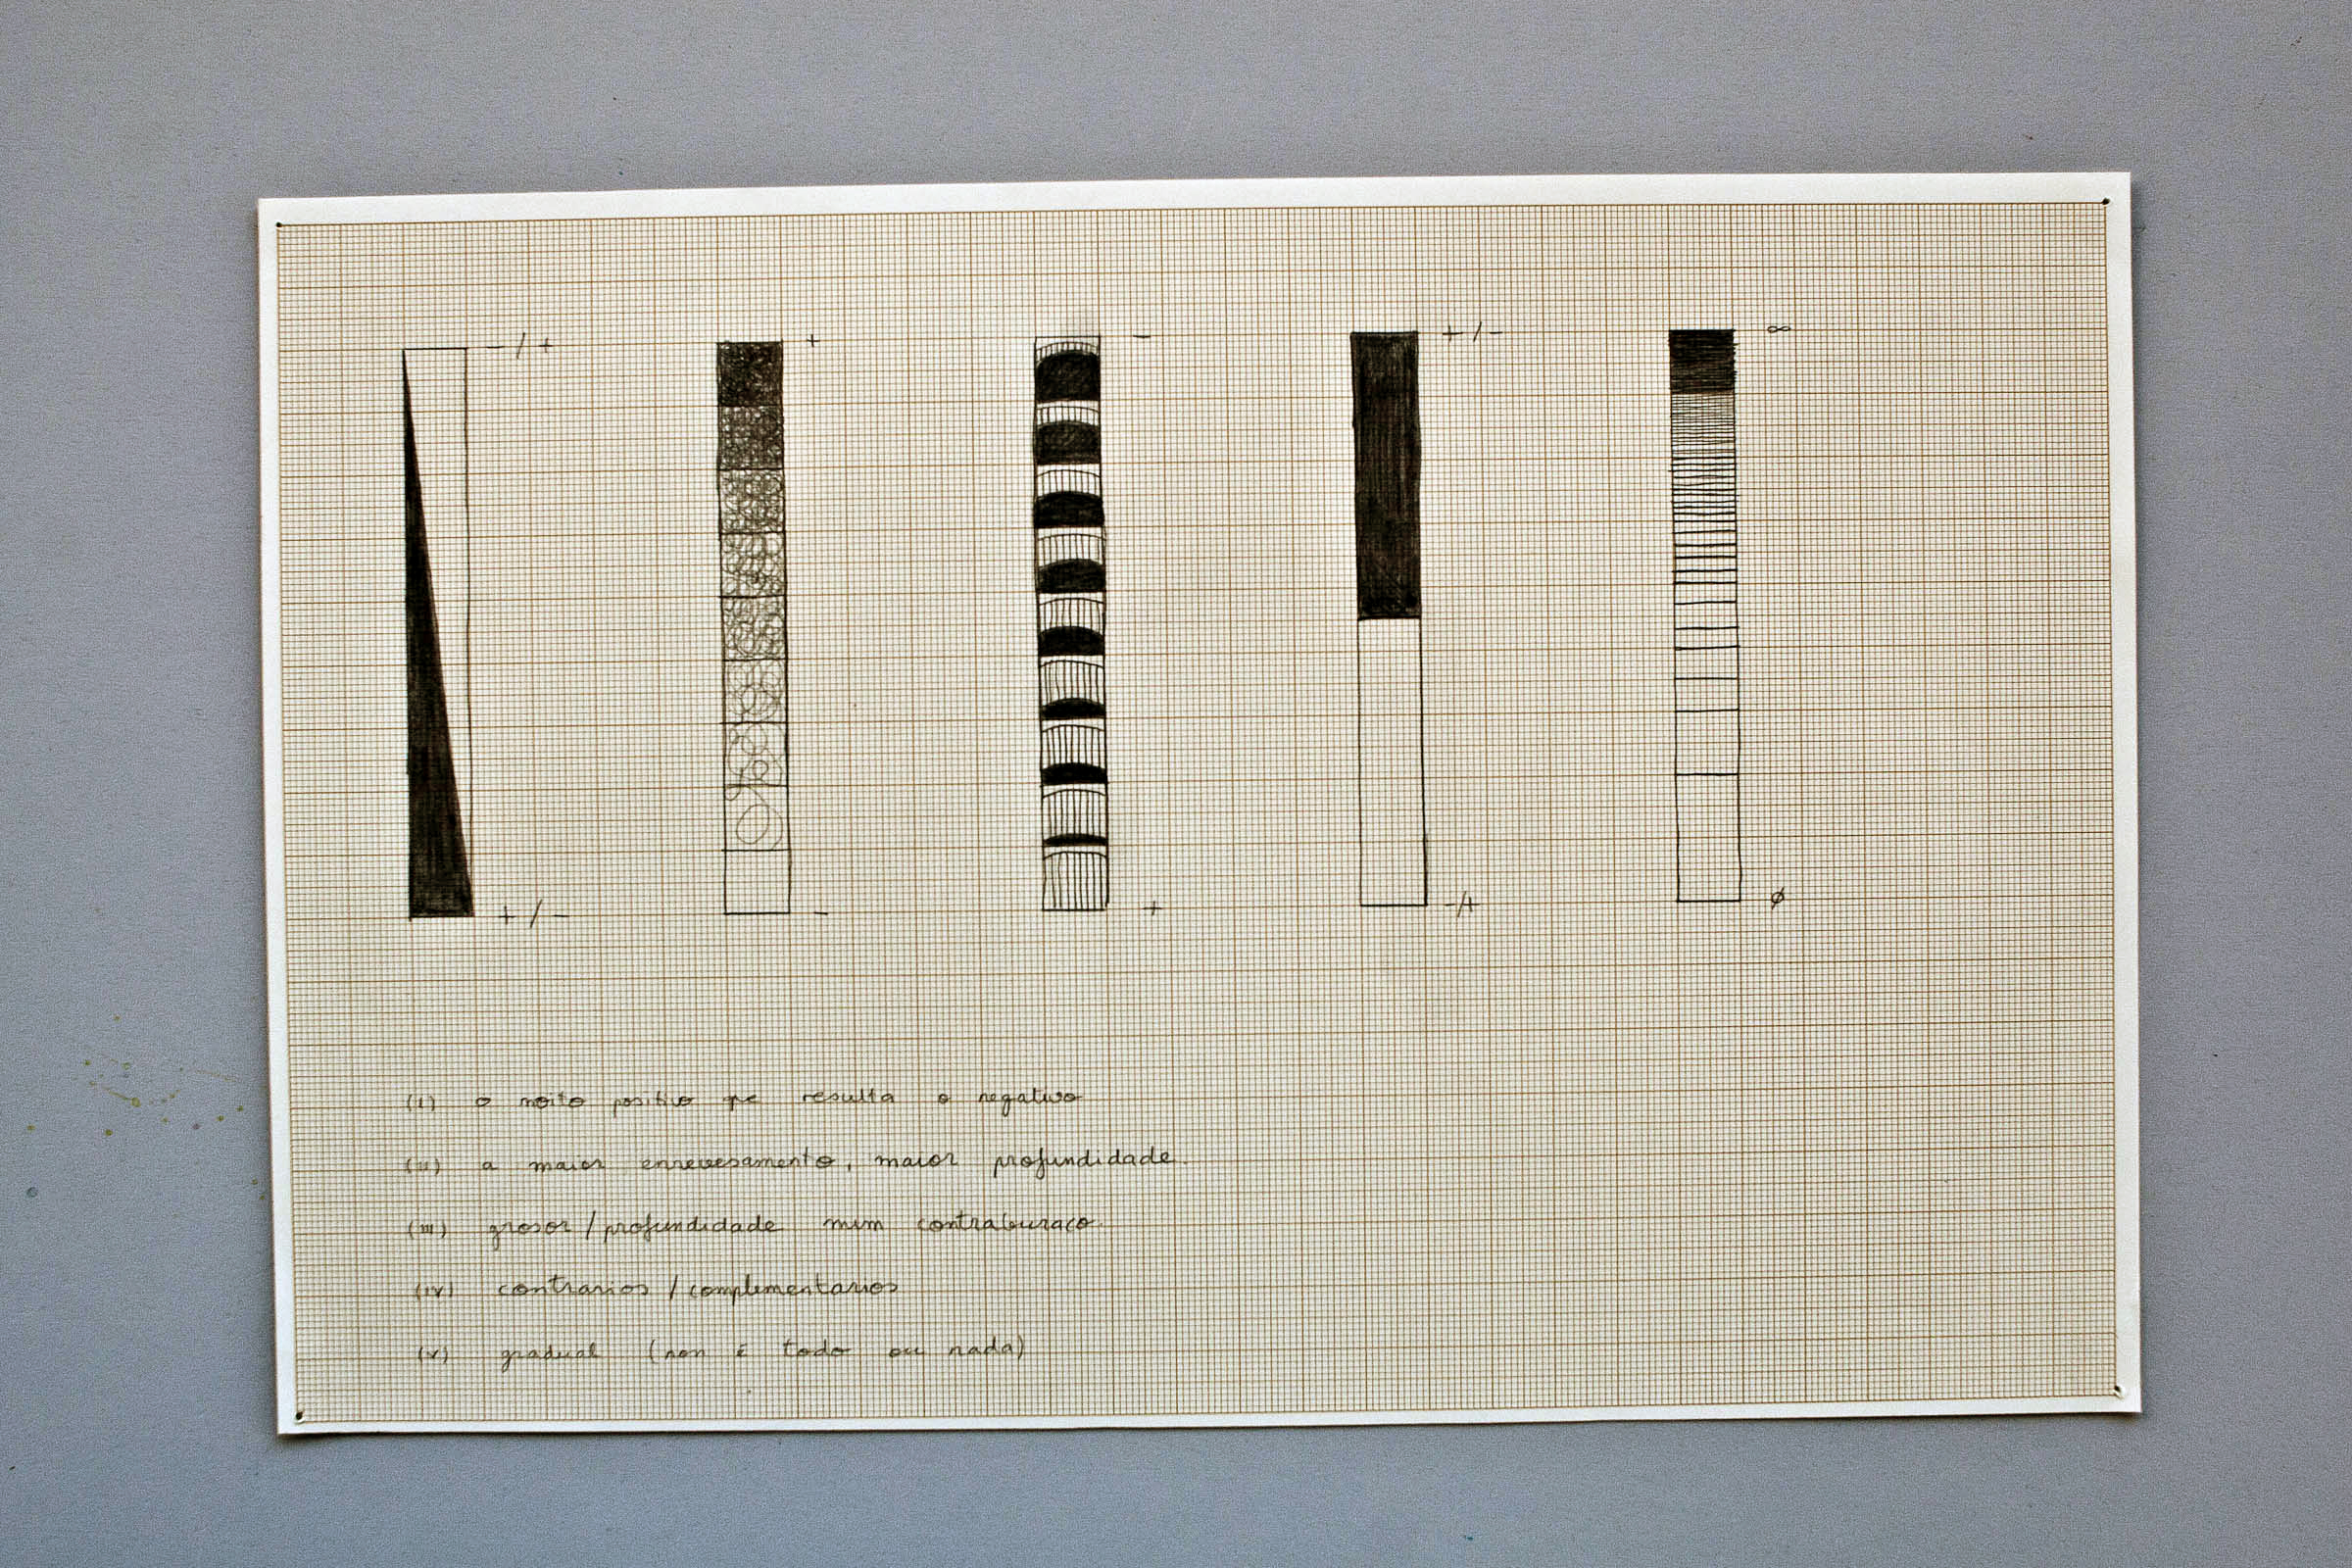 -/+ + - +/- ∞
+/- - + -/+ ø
(I) o moito positivo que resulta o negativo
(II) a maior enrevesamento, maior profundidade.
(III) grosor/profundidade num contraburaco.
(IV) contrarios/complementarios
(V) gradual (non é todo ou nada)